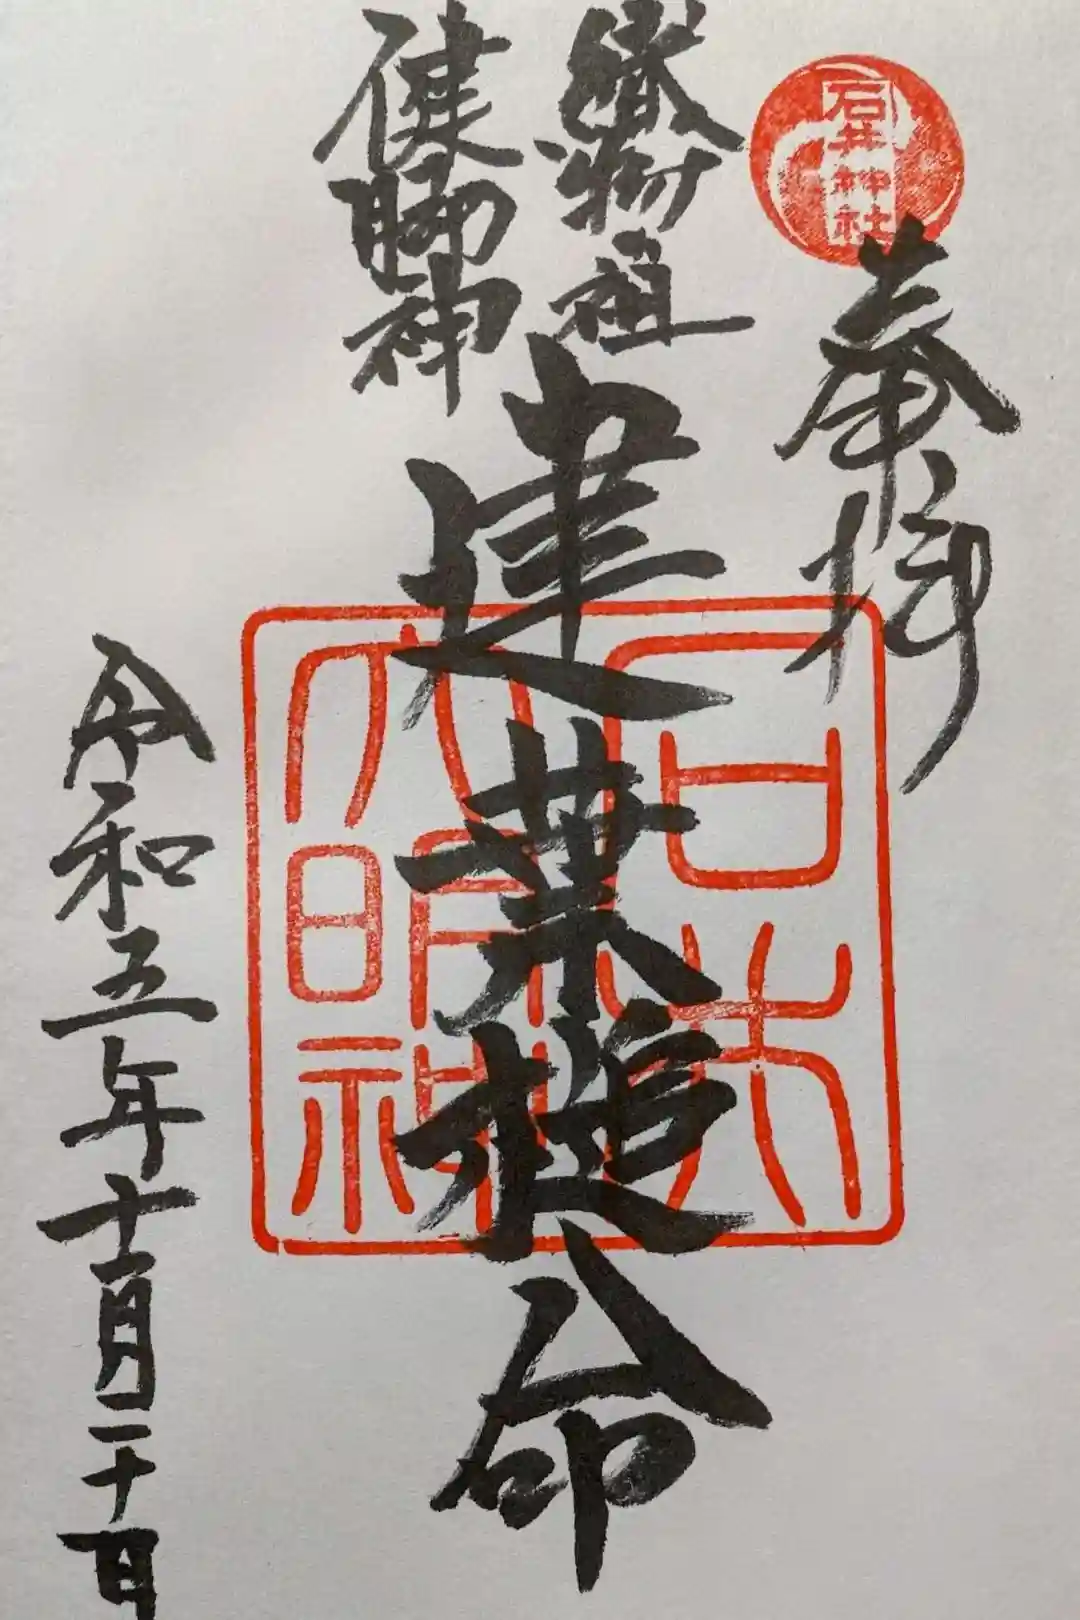 石井神社
奉拝
織物祖
健脚神
建葉槌命
大明神
令和五年十一月二十一日